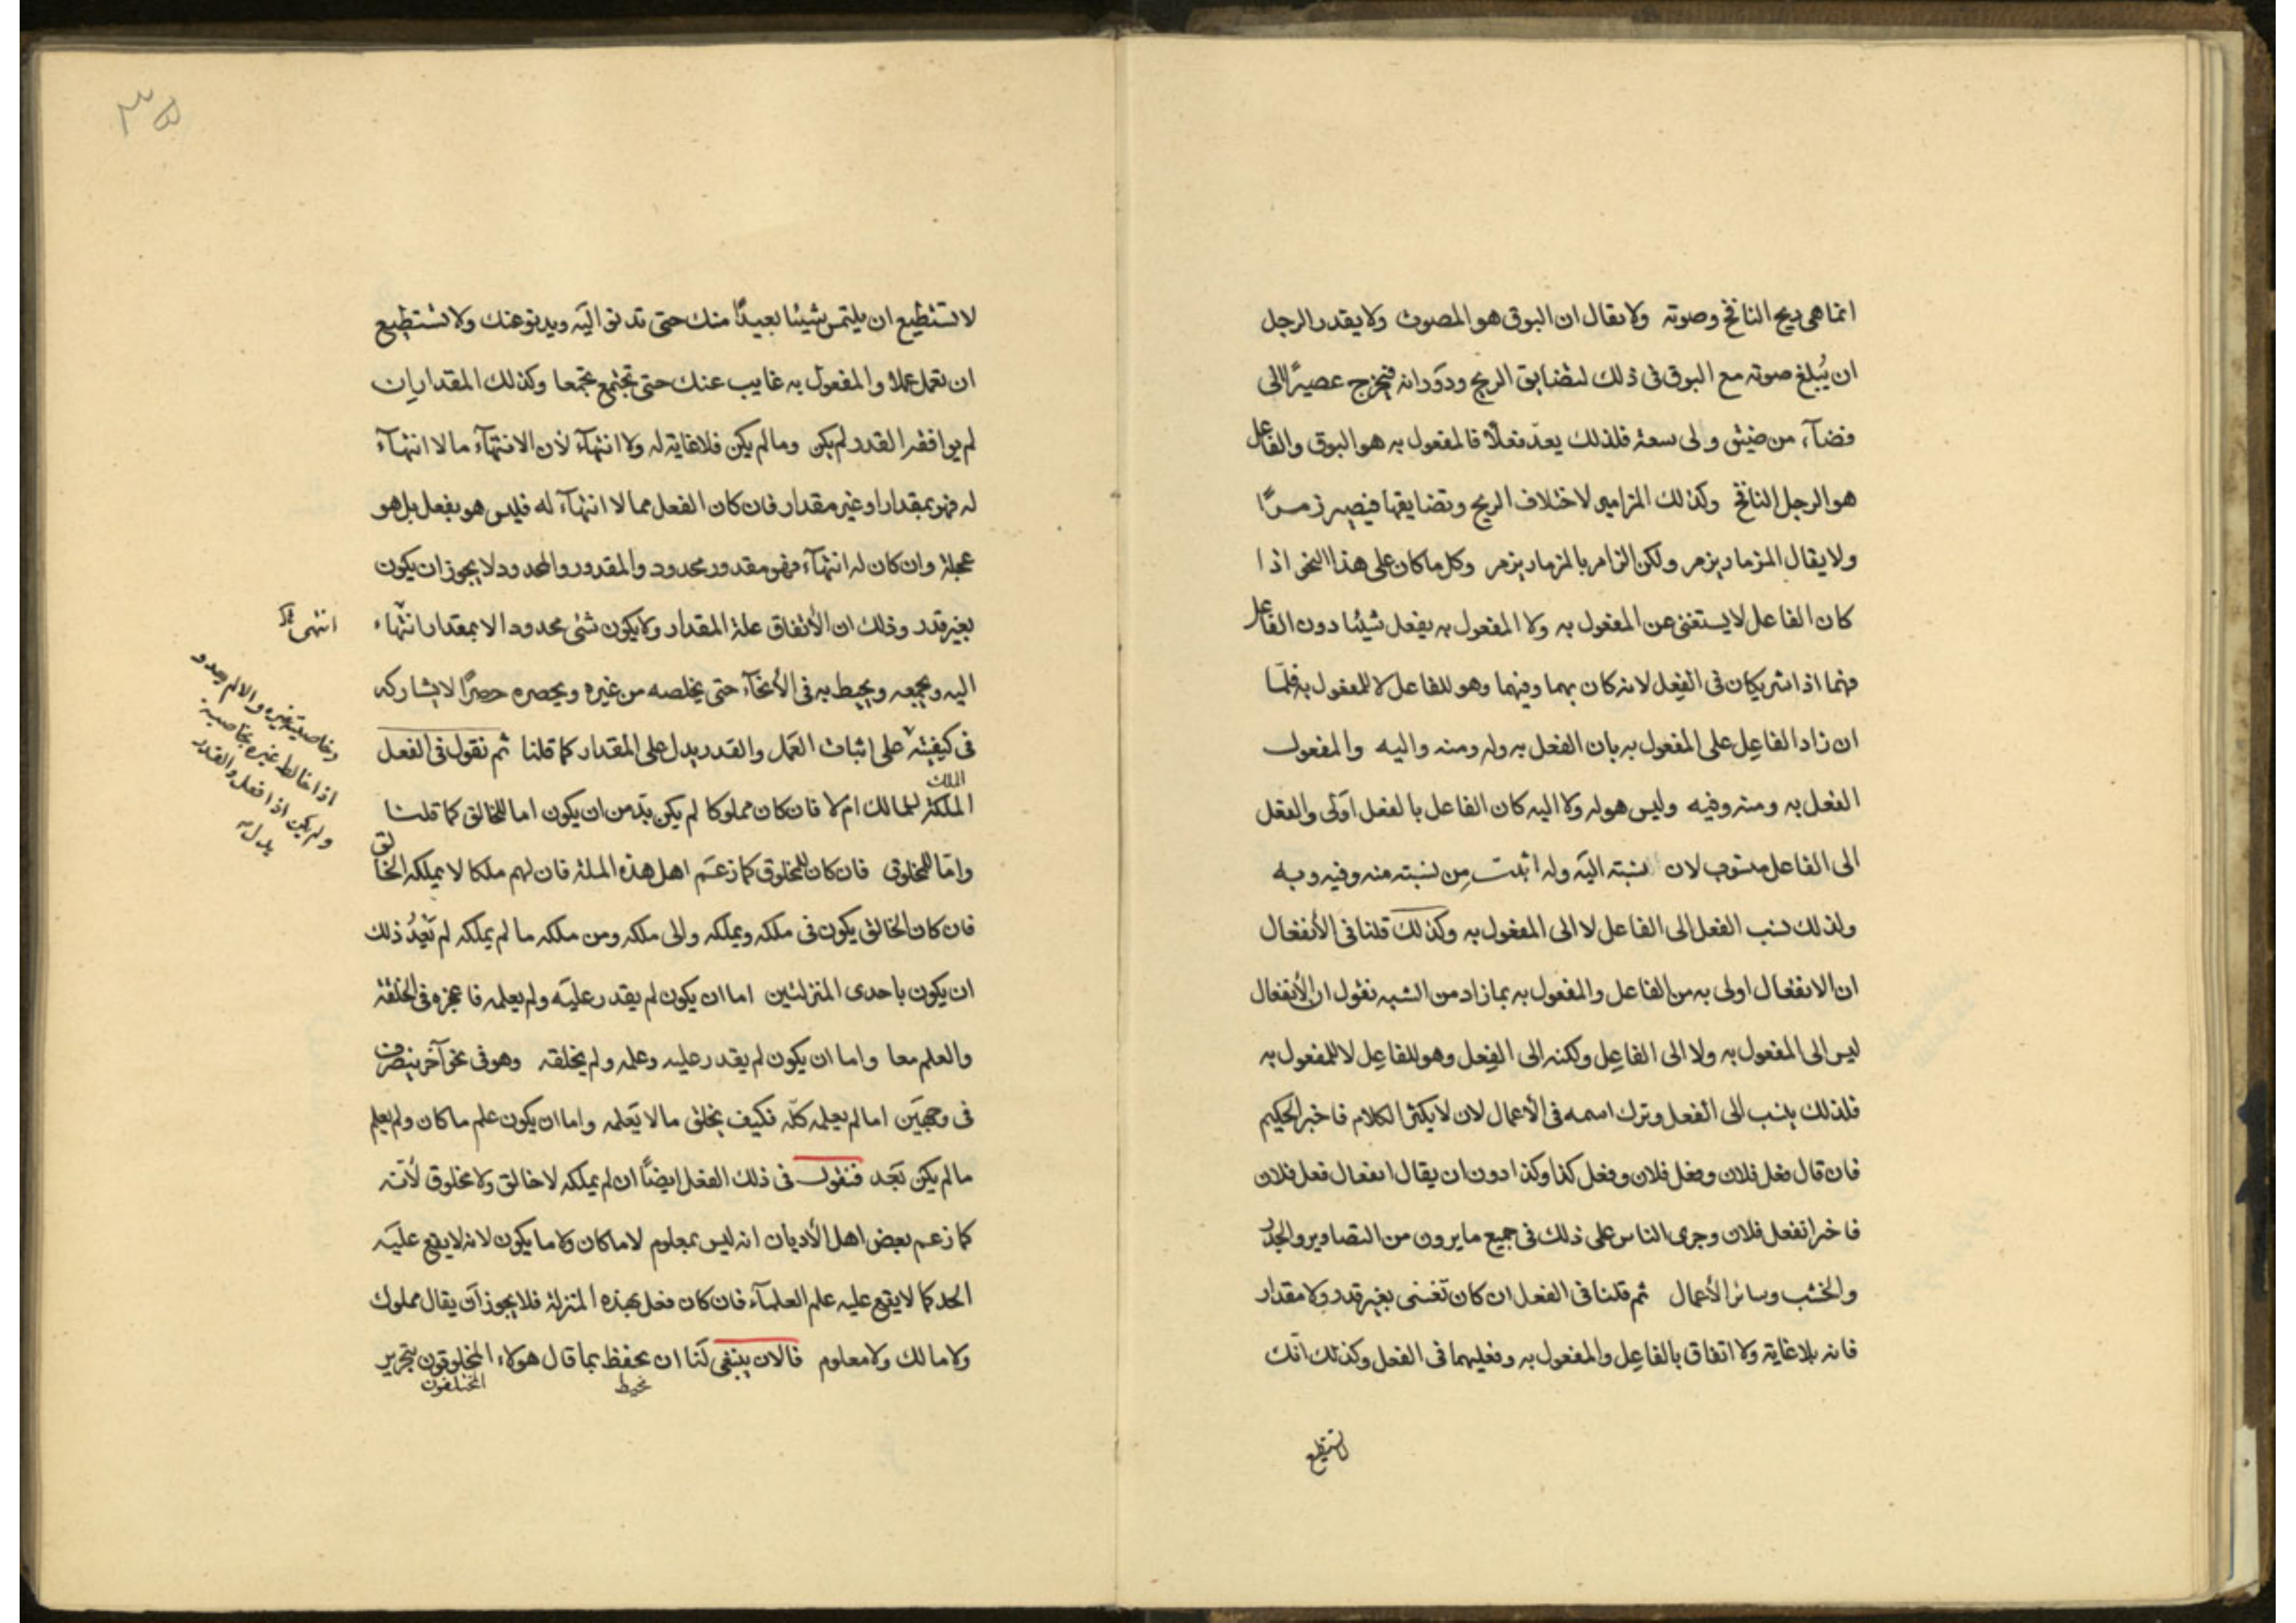 انما هى ريح النافخ وصوته ولا يقال ان البوق هو المصوت ولا يقدر الرجل
ان يُبلغ صوته مع البوق فى ذلك لتضايق الريح ودورانه فيخرج عصيرًا الى
فضآء من ضيق و لى سعة فلذلك يعدّ فعلًا فالمفعول به هو البوق والفاعل
هو الرجل النافخ وكذلك المزامير لاختلاف الريح وتضايقها فيصير زمرًا
ولا يقال المزمار يزمر ولكن الزامر بالمزمار يزمر وكل ما كان على هذا النحو اذا
كان الفاعل لا يستغنى عن المفعول به ولا المفعول به يفعل شيئا دون الفاعل
فهما اذا شريكان فى الفعل لانه كان بهما وفيهما وهو للفاعل لا للمفعول به فلمّا
ان زاد الفاعل على المفعول به بان الفعل به وله ومنه واليه والمفعول
الفعل به ومنه وفيه وليس هو له ولا اليه كان الفاعل بالفعل اولى والفعل
الى الفاعل منسوب لان نسبته اليه وله اثبت من نسبته منه وفيه وبه
ولذلك نسب الفعل الى الفاعل لا الى المفعول به وكذلك قلنا فى الأنفعال
ان الانفعال اولى به من الفاعل والمفعول به بما زاد من الشبه نقول ان الأنفعال
ليس الى المفعول به ولا الى الفاعل ولكنه الى الفعل وهو للفاعل لا للمفعول به
فلذلك ينسب الى الفعل وترك اسمه فى الأعمال لان لا يكثر الكلام فاخبر الحكيم
فان قال فعل فلان وفعل فلان وفعل كذا وكذا دون ان يقال انفعال فعل فلان
فاخر انفعل فلان وجرى الناس على ذلك فى جميع ما يرون من التصاوير والجدر
والخشب وسائر الأعمال ثم قلنا فى الفعل ان كان تغنى بغير قدر ولا مقدار
فانه بلا غاية ولا اتفاق بالفاعل والمفعول به وفعليهما فى الفعل وكذلك انّك
لا تستطيع
٣٥
لا تستطيع ان يلتمس شيئا بعيدًا منك حتى تدنو اليه ويدنو عنك ولا تستطيع
ان تعمل عملا والمفعول به غايب عنك حتى تجتمع مجتمعا وكذلك المقدار ان
لم يوافقه القدر لم يكن وما لم يكن فلا غاية له ولا انتهآء لأن الانتهآء ما لا انتهآء
له فهو بمقدار او غير مقدار فان كان الفعل مما لا انتهآء له فليس هو بفعل بل هو
عجلة وان كان له انتهآء فهو مقدور محدود والمقدور والمحدود لا يجوز ان يكون
بغير قدر وذلك ان الأتفاق علة المقدار ولا يكون شئ محدود الا بمقدار انتهاء
اليه ويجمعه ويحيط به فى الأنحآء حتى يخلصه من غيره ويحصره حصرًا لا يشاركه
فى كيفيته على اثبات العمل والقدر يدل على المقدار كما قلنا ثم نقول فى الفعل
الملك
الملكة لمالك ام لا فان كان مملوكا لم يكن بدّ من ان يكون اما للخالق كما قلنا
وامّا للمخلوق فان كان للمخلوق كما زعم اهل هذه الملة فان لهم ملكا لا يملكه الخالق
فان كان الخالق يكون فى ملكه ويملكه والى ملكه ومن ملكه ما لم يملكه لم يَعدُ ذلك
ان يكون باحدى المنزلتين اما ان يكون لم يقدر عليه ولم يعلمه فاعجزه فى الخلقة
والعلم معا واما ان يكون لم يقدر عليه وعلمه ولم يخلقه وهو فى نحو آخر ينصرف
فى وجهين اما لم يعلمه كلّه فكيف يخلق ما لا يعلمه واما ان يكون علم ما كان ولم يعلم
ما لم يكن تجد فنقول فى ذلك الفعل ايضًا ان لم يملكه لا خالق ولا مخلوق لأنّه
كما زعم بعض اهل الأديان انه ليس بمعلوم لا ما كان ولا ما يكون لانه لا يقع عليه
الحد كما لا يقع عليه علم العلمآء فان كان فعل بهذه المنزلة فلا يجوز أن يقال مملوك
ولا مالك ولا معلوم فالان ينبغى لنا ان نحفظ بما قال هولاء المخلوقون بتحرير
نحيط المختلفون
انتهى
اذا خالط غيره بخاصية
ولم يكن اذا فعل والقدر
يدل به